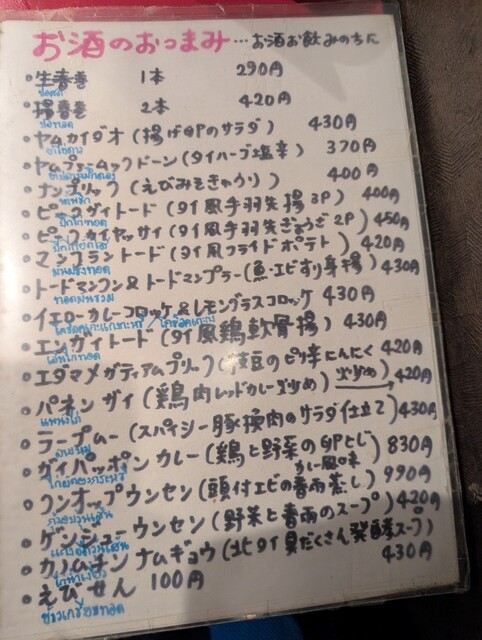 お酒のおつまみ…お酒お飲みのちに
・生春巻 1本 290円
・揚春巻 2本 420円
ปอเปี๊ยะทอด
・ヤムカイダオ (揚げ卵のサラダ) 430円
ยำไข่ดาว
・ヤムプラームックドーン (タイハーブ塩辛) 370円
・ナンプリック (えびみそきゅうり) 400円
・ピークガイトード (タイ風手羽先揚 3P) 400円
ปีกไก่ทอด
・ピークガイヤッサイ (タイ風手羽先ぎょうざ 2P) 450円
・マンファラントード (タイ風フライドポテト) 420円
มันฝรั่งทอด
・トードマンクン&トードマンプラー (魚・エビすり身揚) 430円
・イエローカレーコロッケ&レモングラスコロッケ 430円
・エンガイトード (タイ風鶏軟骨揚) 430円
เอ็นไก่ทอด
・エダマメガティアムプリック (枝豆のピリ辛にんにく炒め) 420円
・パネン ガイ (鶏肉レッドカレー炒め) 420円
แพนงไก่
・ラープムー (スパイシー豚挽肉のサラダ仕立て) 430円
ลาบหมู
・ガイパッポン カレー (鶏と野菜の卵とじカレー風味) 830円
・クンオップウンセン (頭付エビの春雨蒸し) 990円
กุ้งอบวุ้นเส้น
・ゲンジューウンセン (野菜と春雨のスープ) 420円
แกงจืดวุ้นเส้น
・カノムチン ナムギョウ (北タイ具だくさん発酵スープ) 430円
・えびせん 100円
ข้าวเกรียบทอด